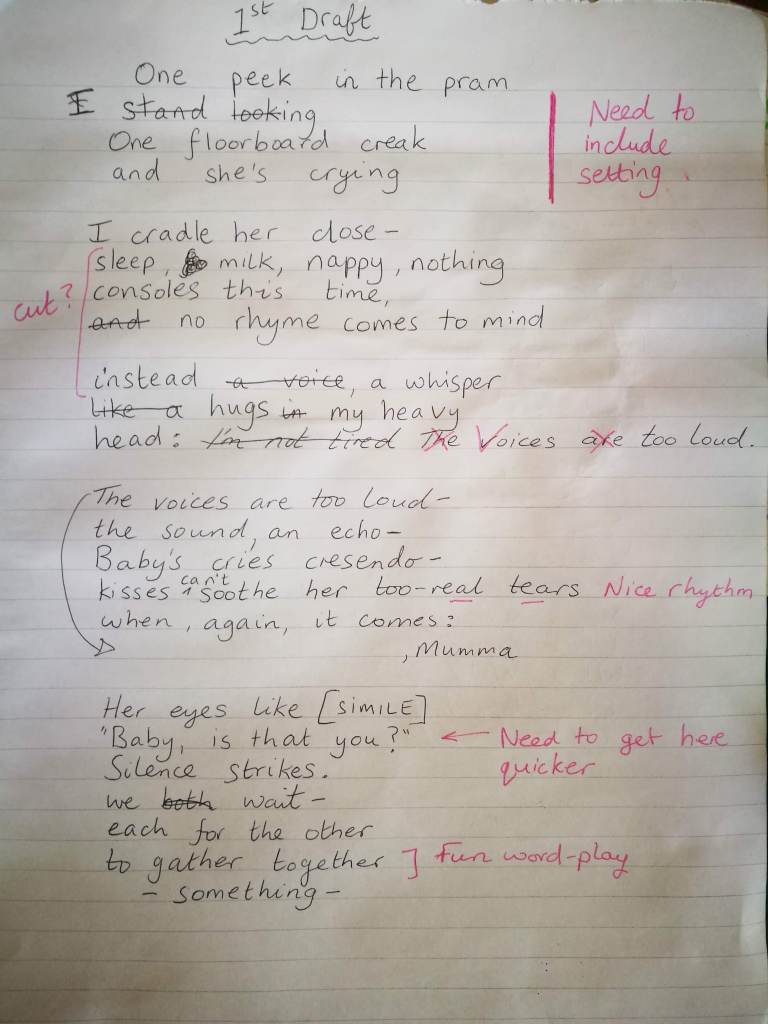 1st Draft
One peek in the pram
I stand looking
One floorboard creak
and she's crying
Need to
include
setting.
I cradle her close-
sleep, milk, nappy, nothing
consoles this time,
and no rhyme comes to mind
cut?
instead a voice, a whisper
like a hugs in my heavy
head: I'm not tired The Voices are too loud.
The voices are too loud-
the sound, an echo-
Baby's cries cresendo-
kisses can't soothe her too-real tears Nice rhythm
when, again, it comes:
, Mumma
Her eyes like [SIMILE]
"Baby, is that you?" ← Need to get here
quicker
Silence strikes.
we both wait-
each for the other
to gather together ] Fun word-play
- something -